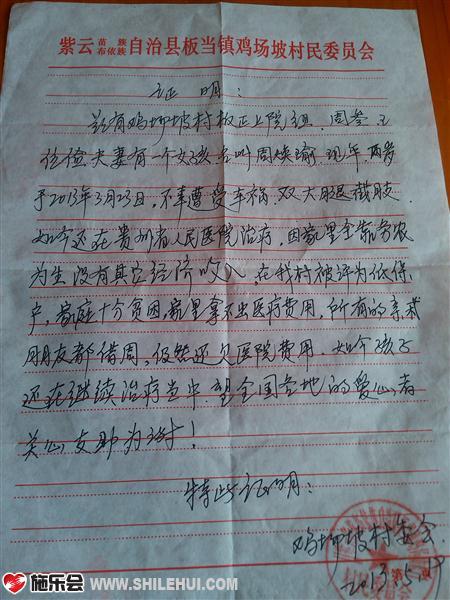 紫云苗族布依族自治县板当镇鸡场坡村民委员会
证 明：
兹有鸡场坡村板正上院组，周叁
夫妻有一个女孩名叫周焕瑜 现年 两岁
于2013年3月23日，不幸遭受车祸，双大腿截肢．
如今还在贵州省人民医院治疗，因家里全靠务农
为生 没有其它经济收入，在我村被评为低保
户，家庭十分贫困，家里拿不出医疗费用，所有的亲戚
朋友都借周，仍然还欠医院费用．如今孩子
还在继续治疗当中．望全国各地的爱心者
关心支助为谢！
特此证明：
鸡场坡村委会
2013.5.
施乐会 WWW.SHILEHUI.COM